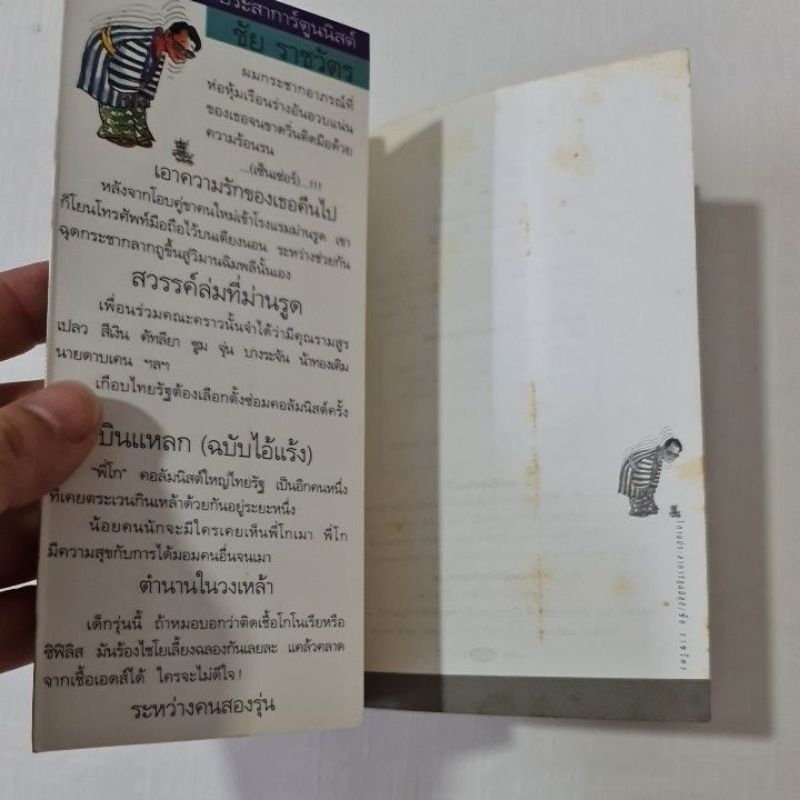 ประสาการ์ตูนนิสต์
ชัย ราชวัตร
ผมกระชากอาภรณ์ที่
ห่อหุ้มเรือนร่างอันอวบแน่น
ของเธอจนขาดวิ่นติดมือด้วย
ความร้อนรน
...(เซ็นเซ่อร์)...!!!
เอาความรักของเธอคืนไป
หลังจากโอบคู่ขาคนใหม่เข้าโรงแรมม่านรูด เขา
ก็โยนโทรศัพท์มือถือไว้บนเตียงนอน ระหว่างช่วยกัน
ฉุดกระชากลากถูขึ้นสู่วิมานฉิมพลีนั้นเอง
สวรรค์ล่มที่ม่านรูด
เพื่อนร่วมคณะคราวนั้นจำได้ว่ามีคุณรามสูร
เปลว สีเงิน คัทลียา ซูม จุ่น บางระจัน น้าทองเติม
นายดาบเคน ฯลฯ
เกือบไทยรัฐต้องเลือกตั้งซ่อมคอลัมนิสต์ครั้ง
บินแหลก (ฉบับไอ้แร้ง)
"พี่โก" คอลัมนิสต์ใหญ่ไทยรัฐ เป็นอีกคนหนึ่ง
ที่เคยตระเวนกินเหล้าด้วยกันอยู่ระยะหนึ่ง
น้อยคนนักจะมีใครเคยเห็นพี่โกเมา พี่โก
มีความสุขกับการได้มอมคนอื่นจนเมา
ตำนานในวงเหล้า
เด็กรุ่นนี้ ถ้าหมอบอกว่าติดเชื้อโกโนเรียหรือ
ซิฟิลิส มันร้องไชโยเลี้ยงฉลองกันเลยละ แคล้วคลาด
จากเชื้อเอดส์ได้ ใครจะไม่ดีใจ!
ระหว่างคนสองรุ่น